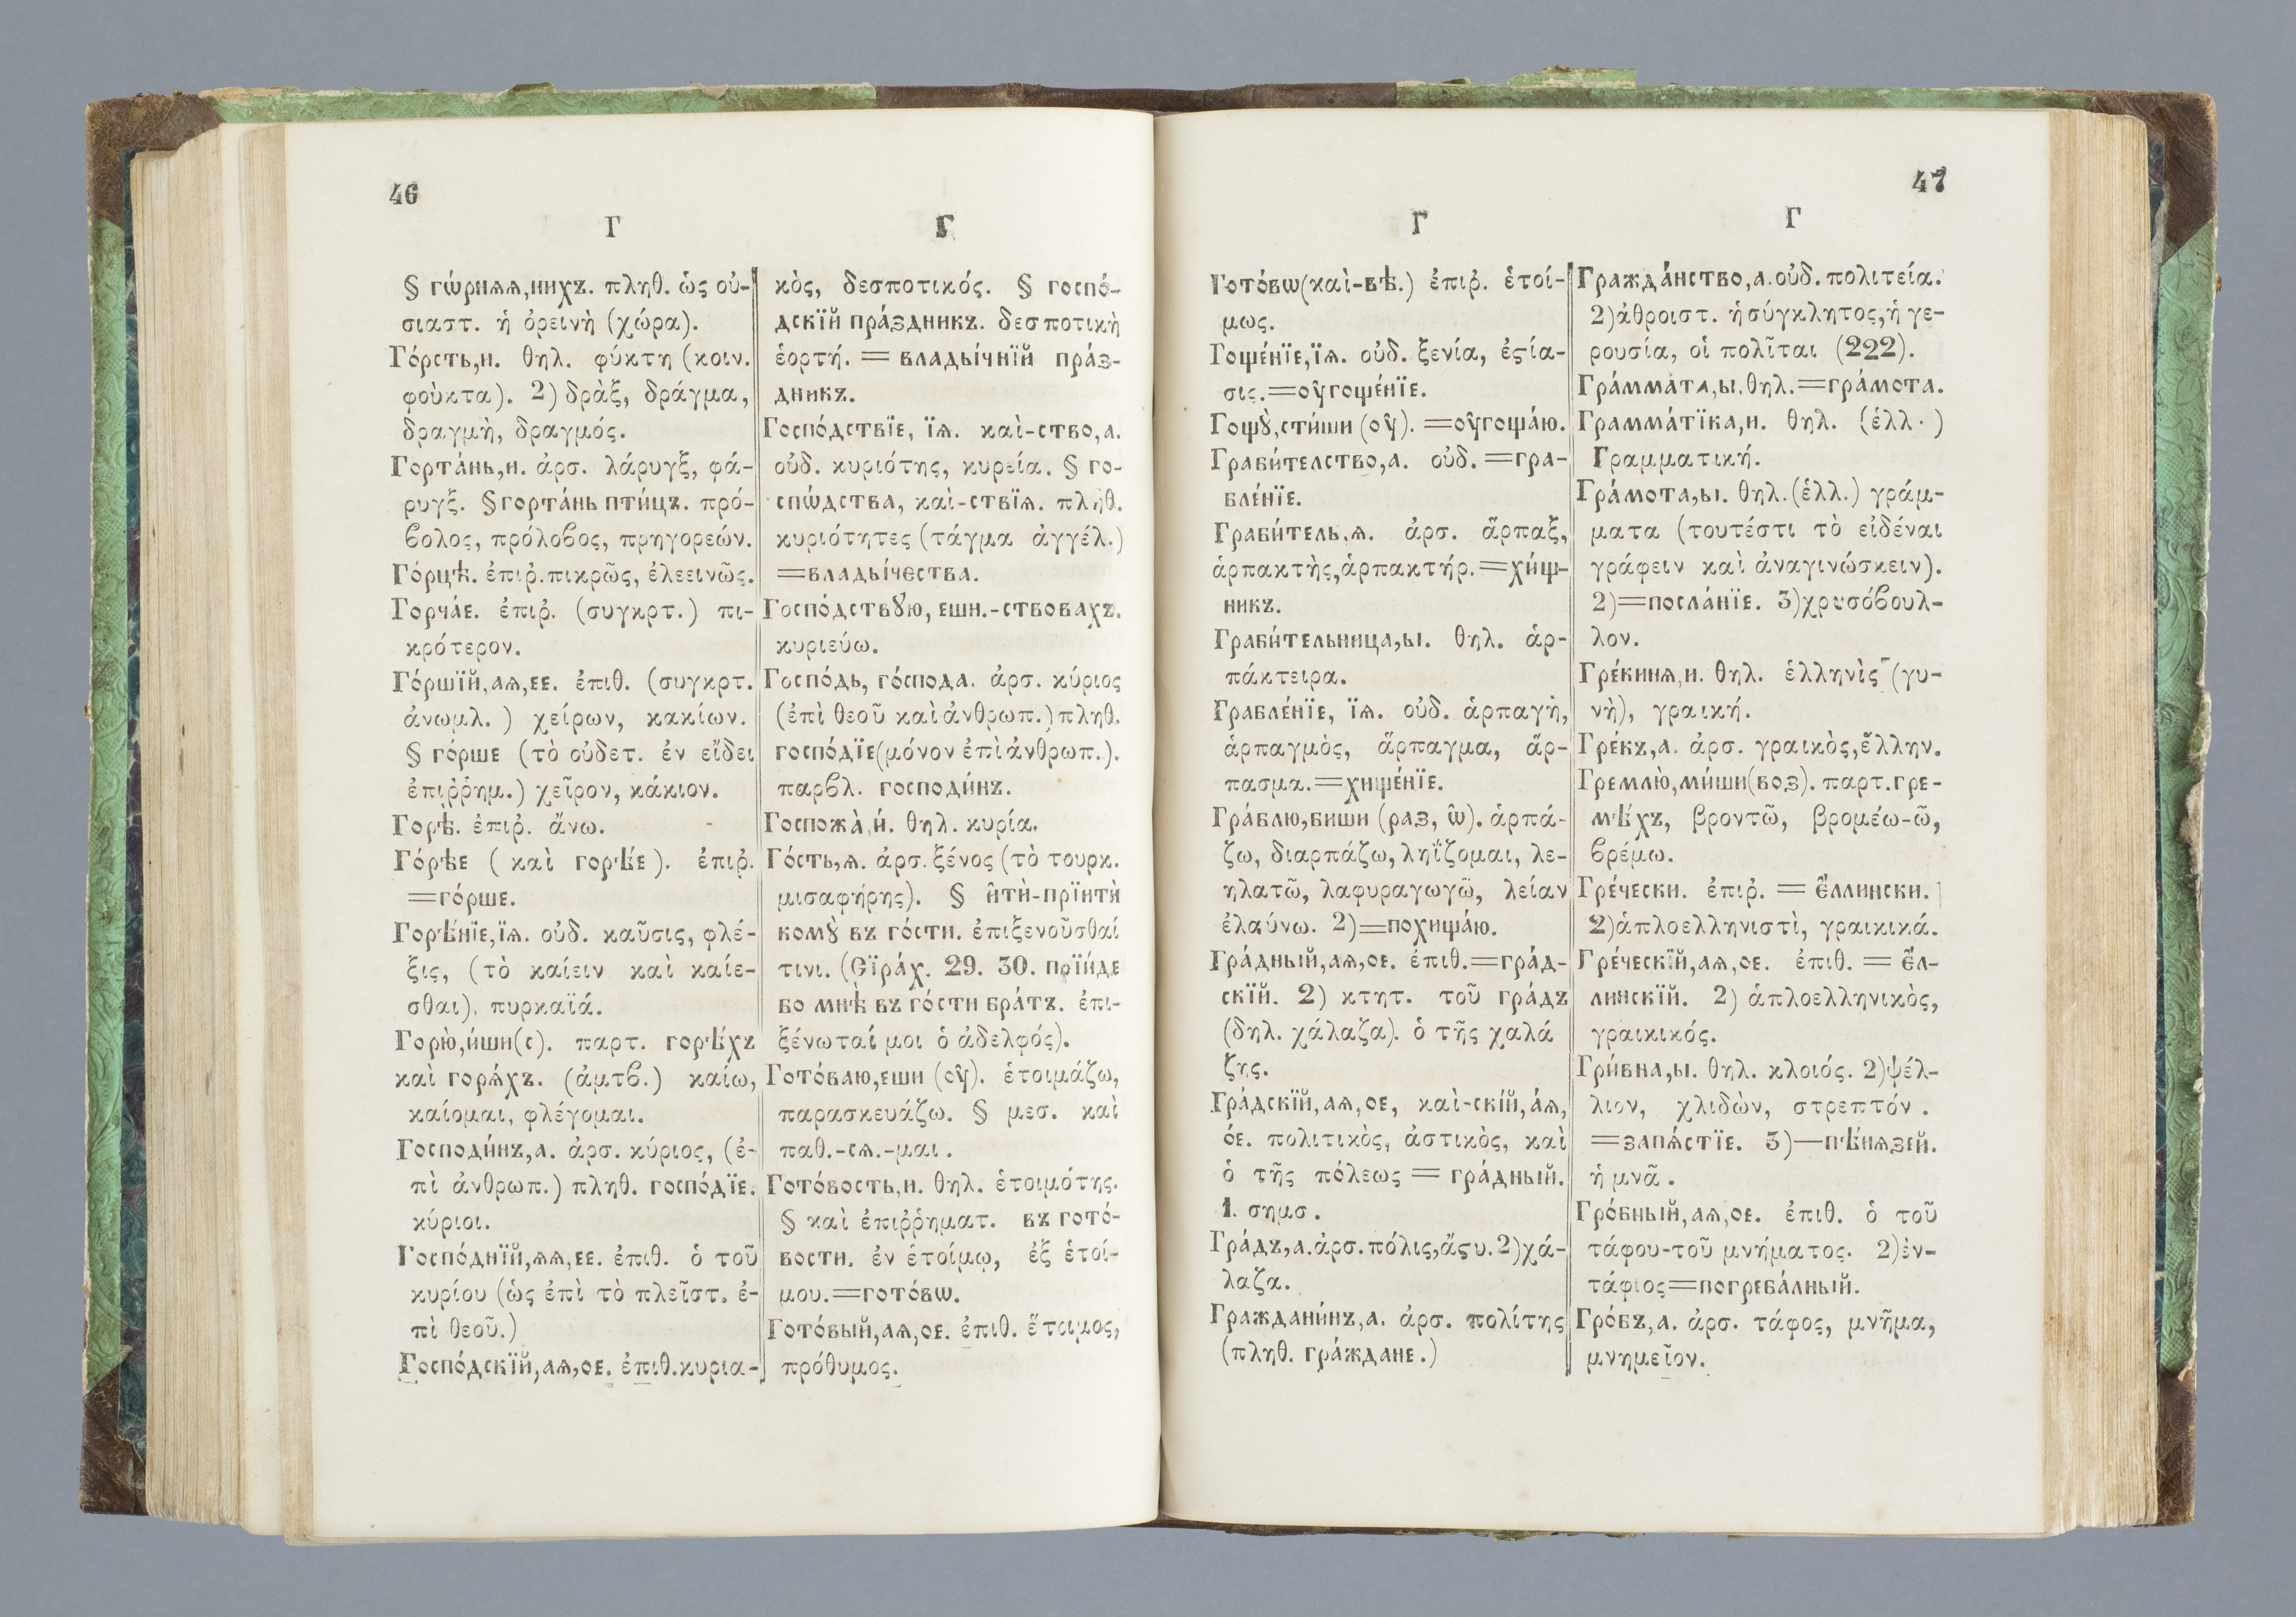 46
Г
Г
§ гѡ́рнѧѧ,нихъ. πληθ. ὡς οὐ-
σιαστ. ἡ ὀρεινὴ (χώρα).
Го́рсть,и. θηλ. φύκτη (κοιν.
φοὺκτα). 2) δρὰξ, δράγμα,
δραγμὴ, δραγμός.
Горта́нь,и. ἀρσ. λάρυγξ, φά-
ρυγξ. § горта́нь пти́цъ. πρό-
βολος, πρόλοβος, πρηγορεών.
Го́рцѣ. ἐπιῤ. πικρῶς, ἐλεεινῶς.
Горча́е. ἐπιῤ. (συγκρτ.) πι-
κρότερον.
Го́ршїй,аѧ,ее. ἐπιθ. (συγκρτ.
ἀνωμλ.) χείρων, κακίων.
§ го́рше (τὸ οὐδετ. ἐν εἴδει
ἐπιῤῥημ.) χεῖρον, κάκιον.
Горѣ̀. ἐπιῤ. ἄνω.
Го́рѣе ( καὶ горѣ́е ). ἐπιῤ.
=го́рше.
Горѣ́нїе,їѧ. οὐδ. καῦσις, φλέ-
ξις, (τὸ καίειν καὶ καίε-
σθαι), πυρκαϊά.
Горю̀,и́ши(с). παρτ. горѣ́хъ
καὶ горѧ́хъ. (ἀμτβ.) καίω,
καίομαι, φλέγομαι.
Господи́нъ,а. ἀρσ. κύριος, (ἐ-
πὶ ἀνθρωπ.) πληθ. госпо́дїе.
κύριοι.
Госпо́днїй,ѧѧ,ее. ἐπιθ. ὁ τοῦ
κυρίου (ὡς ἐπὶ τὸ πλεῖστ. ἐ-
πὶ θεοῦ.)
Госпо́дскїй,аѧ,ое. ἐπιθ. κυρια-
κὸς, δεσποτικός. § госпо́-
дскїй пра́здникъ. δεσποτικὴ
ἑορτή. = влады́чнїй пра́з-
дникъ.
Госпо́дствїе, їѧ. καὶ-ство,а.
οὐδ. κυριότης, κυρεία. § го-
спѡ́дства, καὶ-ствїѧ. πληθ.
κυριότητες (τάγμα ἀγγέλ.)
=влады́чества.
Госпо́дствꙋю, еши.-ствовахъ.
κυριεύω.
Госпо́дь, го́спода. ἀρσ. κύριος
(ἐπὶ θεοῦ καὶ ἀνθρωπ.) πληθ.
госпо́дїе(μόνον ἐπὶ ἀνθρωπ.).
παρβλ. господи́нъ.
Госпожа̀,и́. θηλ. κυρία.
Го́сть,ѧ. ἀρσ. ξένος (τὸ τουρκ.
μισαφήρης). § и҆тѝ-прїитѝ
комꙋ̀ въ го́сти. ἐπιξενοῦσθαί
τινι. (Сїра́х. 29. 30. прїи́де
бо мнѣ̀ въ го́сти бра́тъ. ἐπι-
ξένωταί μοι ὁ ἀδελφός).
Гото́ваю,еши (ѹ҆). ἑτοιμάζω,
παρασκευάζω. § μεσ. καὶ
παθ.-сѧ.-μαι.
Гото́вость,и. θηλ. ἑτοιμότης.
§ καὶ ἐπιῤῥηματ. въ гото́-
вости. ἐν ἑτοίμῳ, ἐξ ἑτοί-
μου.=гото́вѡ.
Гото́вый,аѧ,ое. ἐπιθ. ἕτοιμος,
πρόθυμος.
47
Г
Г
Гото́вѡ(καὶ-вѣ.) ἐπιῤ. ἑτοί-
μως.
Гоще́нїе,їѧ. οὐδ. ξενία, ἑϛία-
σις.=ѹ҆гоще́нїе.
Гощꙋ̀,сти́ши (ѹ҆). =ѹ҆гоща́ю.
Граби́телство,а. οὐδ. =гра-
бле́нїе.
Граби́тель,ѧ. ἀρσ. ἅρπαξ,
ἁρπακτὴς,ἁρπακτήρ.=хи́щ-
никъ.
Граби́тельница,ы. θηλ. ἁρ-
πάκτειρα.
Грабле́нїе, їѧ. οὐδ. ἁρπαγὴ,
ἁρπαγμὸς, ἅρπαγμα, ἅρ-
πασμα.=хище́нїе.
Гра́блю,биши (раз, ѡ҆). ἁρπά-
ζω, διαρπάζω, ληΐζομαι, λε-
ηλατῶ, λαφυραγωγῶ, λείαν
ἐλαύνω. 2)=похища́ю.
Гра́дный,аѧ,ое. ἐπιθ.=гра́д-
скїй. 2) κτητ. τοῦ гра́дъ
(δηλ. χάλαζα). ὁ τῆς χαλά
ζης.
Гра́дскїй,аѧ,ое, καὶ-скі́й,а́ѧ,
о́е. πολιτικὸς, ἀστικὸς, καὶ
ὁ τῆς πόλεως = гра́дный.
1. σημσ.
Гра́дъ,а. ἀρσ. πόλις,ἄϛυ. 2)χά-
λαζα.
Граждани́нъ,а. ἀρσ. πολίτης
(πληθ. гра́ждане.)
Гражда́нство,а. οὐδ. πολιτεία.
2)ἀθροιστ. ἡ σύγκλητος,ἡ γε-
ρουσία, οἱ πολῖται (222).
Гра́мма́та,ы. θηλ.=гра́мота.
Грамма́тїка,и. θηλ. (ἑλλ.)
Γραμματική.
Гра́мота,ы. θηλ. (ἑλλ.) γράμ-
ματα (τουτέστι τὸ εἰδέναι
γράφειν καὶ ἀναγινώσκειν).
2)=посла́нїе. 3)χρυσόβουλ-
λον.
Гре́кинѧ,и. θηλ. ἑλληνὶς (γυ-
νὴ), γραική.
Гре́къ,а. ἀρσ. γραικὸς,ἕλλην.
Гремлю̀,ми́ши(воз). παρτ. гре-
мѣ́хъ, βροντῶ, βρομέω-ῶ,
βρέμω.
Гре́чески. ἐπιῤ. = є҆́ллински.
2)ἁπλοελληνιστὶ, γραικικά.
Гре́ческїй,аѧ,ое. ἐπιθ. = є҆́л-
линскїй. 2) ἁπλοελληνικὸς,
γραικικός.
Гри́вна,ы. θηλ. κλοιός. 2)ψέλ-
λιον, χλιδὼν, στρεπτόν.
=запѧ́стїе. 3)—пѣ́нѧзей.
ἡ μνᾶ.
Гро́бный,аѧ,ое. ἐπιθ. ὁ τοῦ
τάφου-τοῦ μνήματος. 2)ἐν-
τάφιος=погреба́лный.
Гро́бъ,а. ἀρσ. τάφος, μνῆμα,
μνημεῖον.